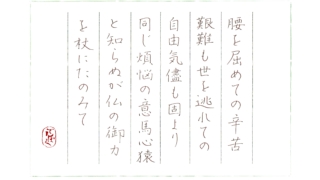 腰を屈めての辛苦
艱難も世を逃れての
自由気儘も固より
同じ煩悩の意馬心猿
と知らぬが仏の御力
を杖にたのみて